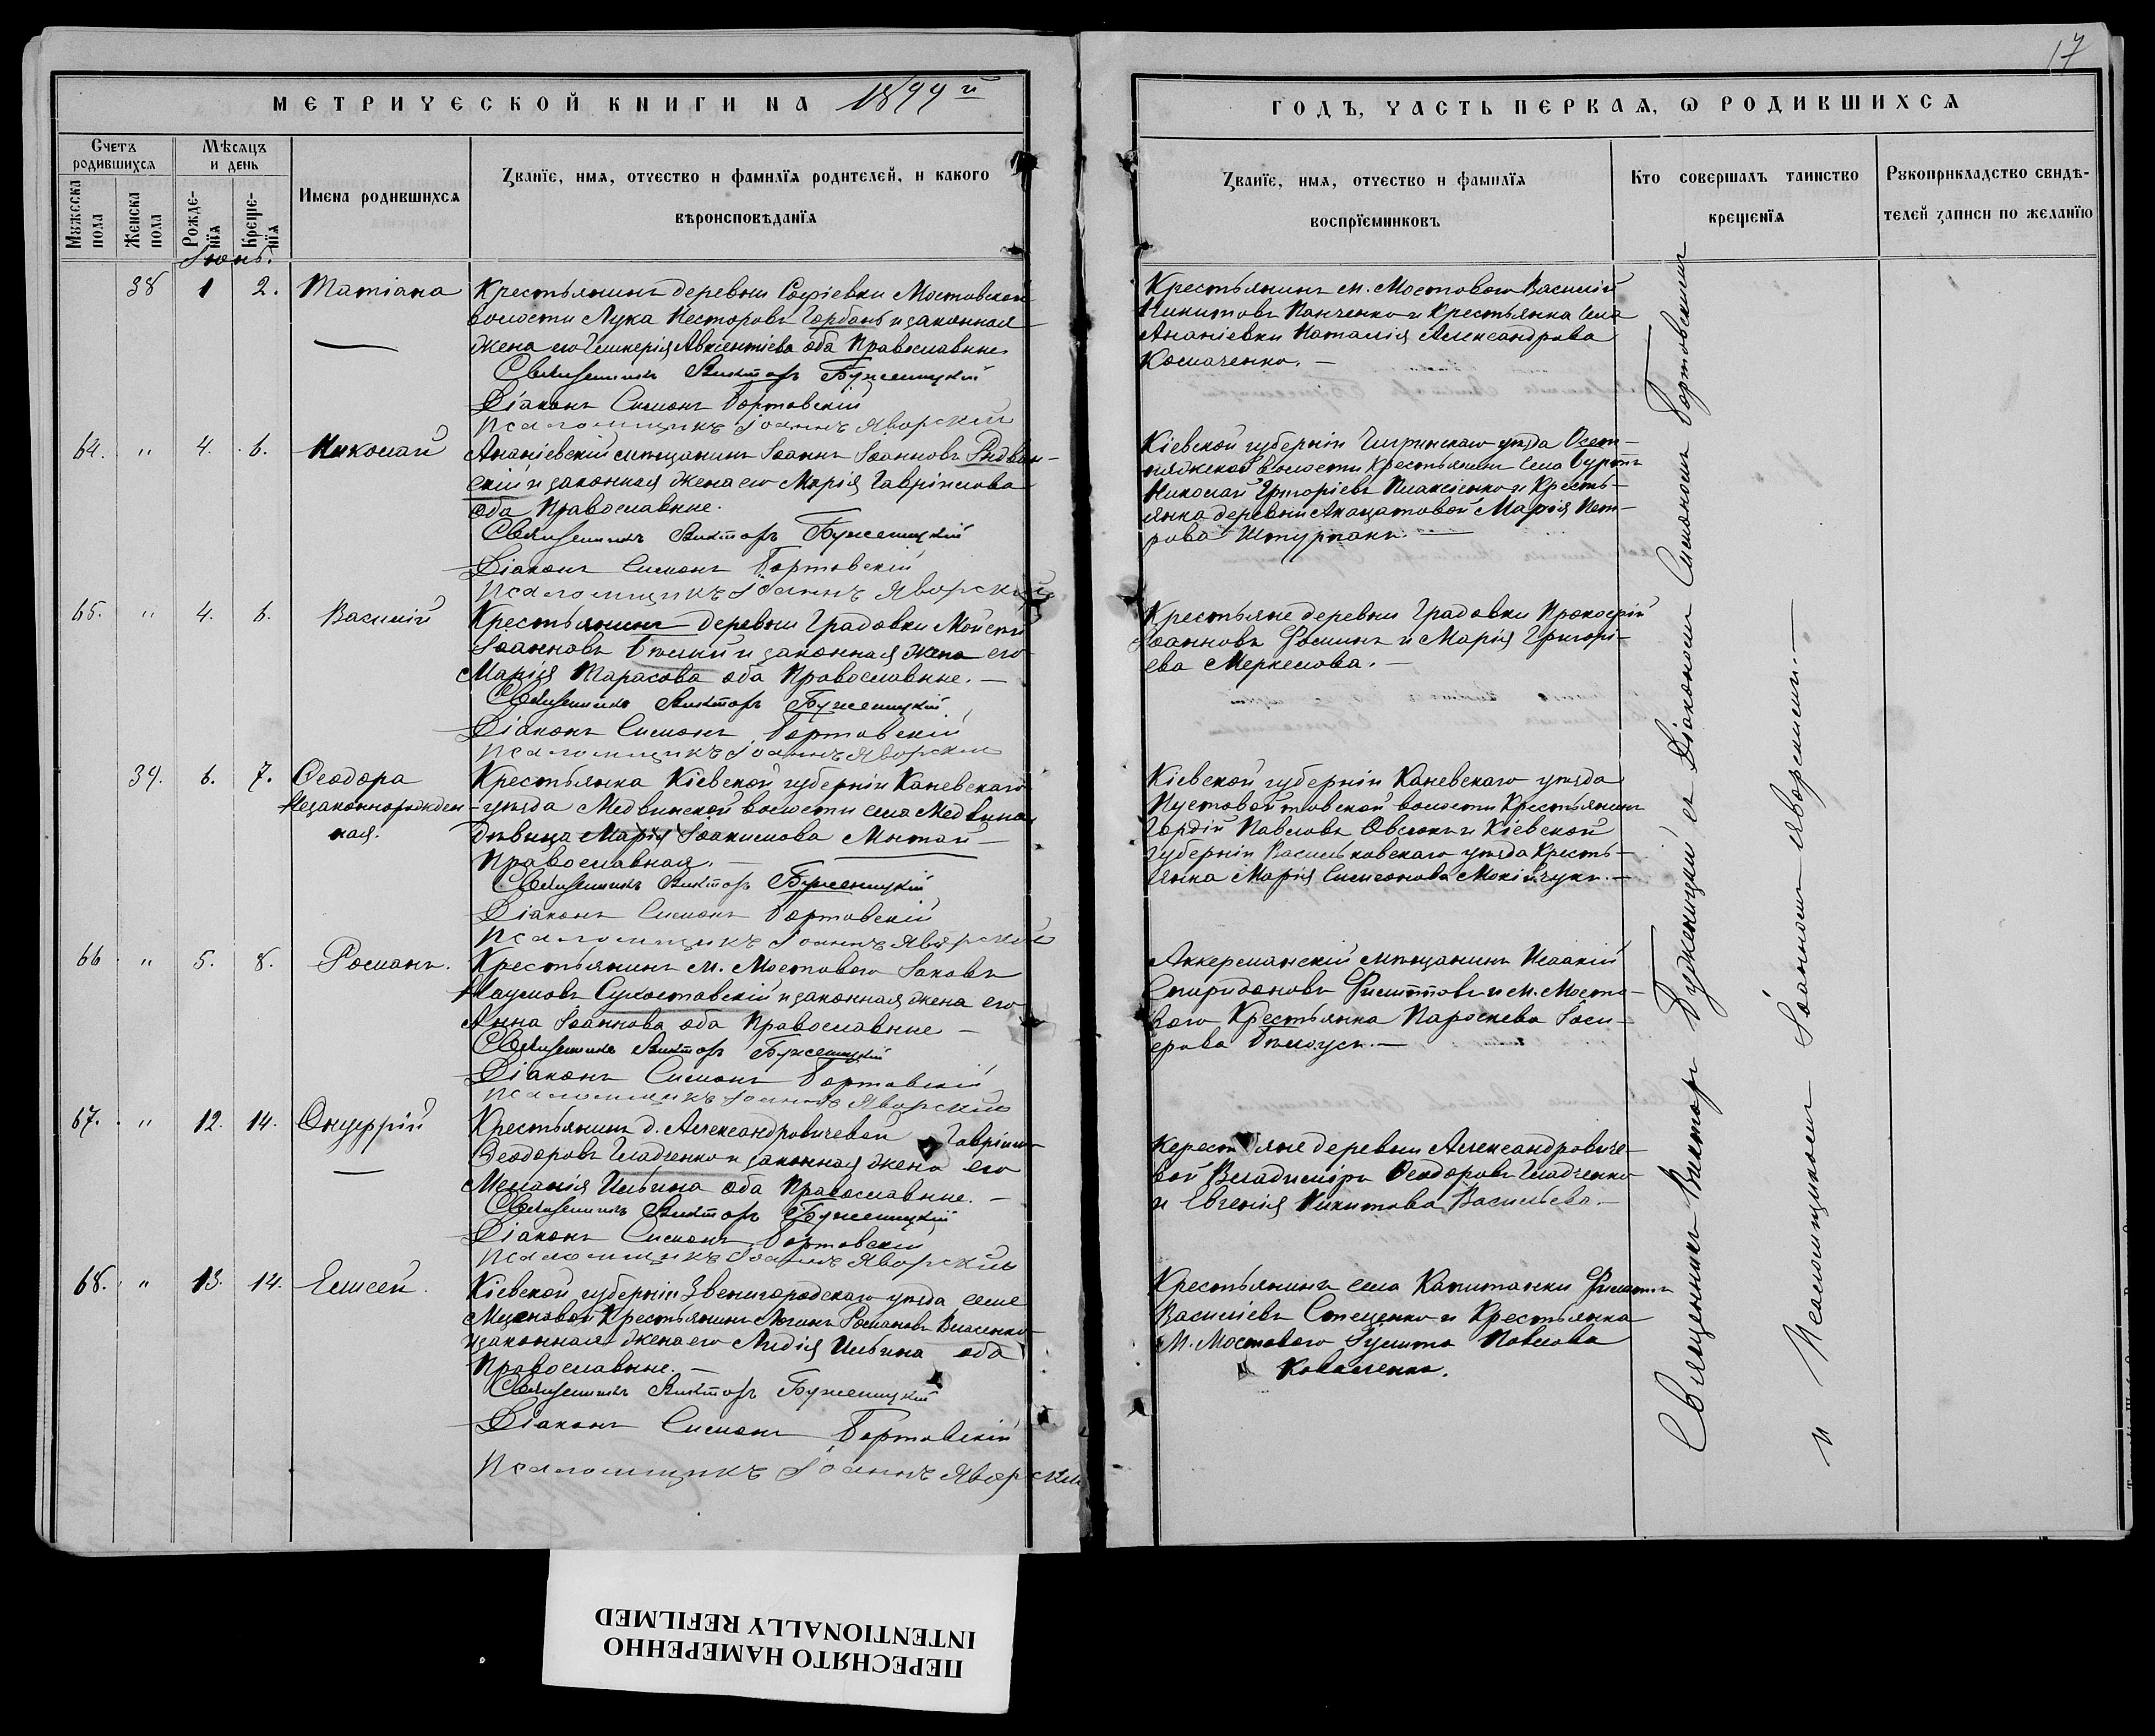 17
МЕТРИЧЕСКОЙ КНИГИ НА 1899й
ГОДЪ, ЧАСТЬ ПЕРВАЯ, Ѡ РОДИВШИХСЯ
Счетъ родившихся
Мѣсяцъ и день
Имена родившихся
Званїе, имя, отчество и фамилїя родителей, и какого
вѣроисповѣданїя
Званїе, имя, отчество и фамилїя
воспрїемниковъ
Кто совершалъ таинство
крещенїя
Рукоприкладство свидѣ-
телей записи по желанїю
Мужеска пола
Женска пола
Рожде-
нїя
Креще-
нїя
Іюнь.
38 1 2. Татіана
Крестьянинъ деревни Софіевки Мостовской
волости Лука Несторовъ Горбань и законная
жена его Авксентіева оба Православные
Священникъ Викторъ Буженицкій
Діаконъ Симонъ Бортовскій
Псаломщикъ Іоаннъ Яворскій
Крестьянинъ м. Мостового Василій
Никитовъ Панченко и Крестьянка села
Ананіевки Наталія Александрова
Космаченко. —
64. " 4. 6. Николай
Ананіевскій мѣщанинъ Іоаннъ Іоанновъ Рыдван-
скій и законная жена его Марія Гавріилова
оба Православные.
Священникъ Викторъ Буженицкій
Діаконъ Симонъ Бортовскій
Псаломщикъ Іоаннъ Яворскій
Кіевской губерніи Чигринскаго уѣзда Осет-
няжской волости Крестьянин села
Николай Григоріевъ и Кресть-
янка деревни Акацатовой Марія Пет-
рова Штурманъ. —
65. " 4. 6. Василій
Крестьянинъ деревни Градовки Моисей
Іоанновъ Бѣлый и законная жена его
Марія Тарасова оба Православные. —
Священникъ Викторъ Буженицкій
Діаконъ Симонъ Бортовскій
Псаломщикъ Іоаннъ Яворскій
Крестьяне деревни Градовки Прокофій
Іоанновъ Фоминъ и Марія Григорі-
ева Меркелова. —
39. 6. 7. Ѳеодора
Незаконнорожден
ная.
Крестьянка Кіевской губерніи Каневскаго
уѣзда Медвинской волости села Медвина
дѣвица Марія Іоакимова Мотай —
Православная. —
Священникъ Викторъ Буженицкій
Діаконъ Симонъ Бортовскій
Псаломщикъ Іоаннъ Яворскій
Кіевской губерніи Каневскаго уѣзда
Пустовойтовской волости Крестьянинъ
Гордій Павловъ Овсюкъ и Кіевской
губерніи Васильковскаго уѣзда Кресть-
янка Марія Симеонова Мокійчукъ. —
66 " 5. 8. Романъ.
Крестьянинъ м. Мостового Іаковъ
Наумовъ Сухоставскій и законная жена его
Анна Іоаннова оба Православные —
Священникъ Викторъ Буженицкій
Діаконъ Симонъ Бортовскій
Псаломщикъ Іоаннъ Яворскій
Аккерманскій мѣщанинъ Исаакій
Спиридоновъ Филиттовъ и м. Мосто-
вого Крестьянка Параскева Іоси-
фова Бѣлоусъ. —
67. " 12. 14. Онуфрій
Крестьянин д. Александровичевой Гавріилъ
Ѳеодоровъ Гладченко и законная жена его
Меланія Ильина оба Православные. —
Священникъ Викторъ Буженицкій
Діаконъ Симонъ Бортовскій
Псаломщикъ Іоаннъ Яворскій
Крестьяне деревни Александровиче-
вой Владиміръ Ѳеодоровъ Гладченко
и Евгенія Никитова Васильева. —
68. " 13. 14. Елисей.
Кіевской губерніи Звенигородскаго уѣзда села
Крестьянинъ Логинъ Романовъ Власенко
и законная жена его Лидія Ильина оба
Православные. —
Священникъ Викторъ Буженицкій
Діаконъ Симонъ Бортовскій
Псаломщикъ Іоаннъ Яворскій
Крестьянинъ села Капитанки Филиппъ
Василіевъ Стеценко и Крестьянка
м. Мостового Іулита Павлова
Коваленко.
Священникъ Викторъ Буженицкій съ Діакономъ Симономъ Бортовскимъ
и Псаломщикомъ Іоанномъ Яворскимъ. —
ПЕРЕСНЯТО НАМЕРЕННО
INTENTIONALLY REFILMED